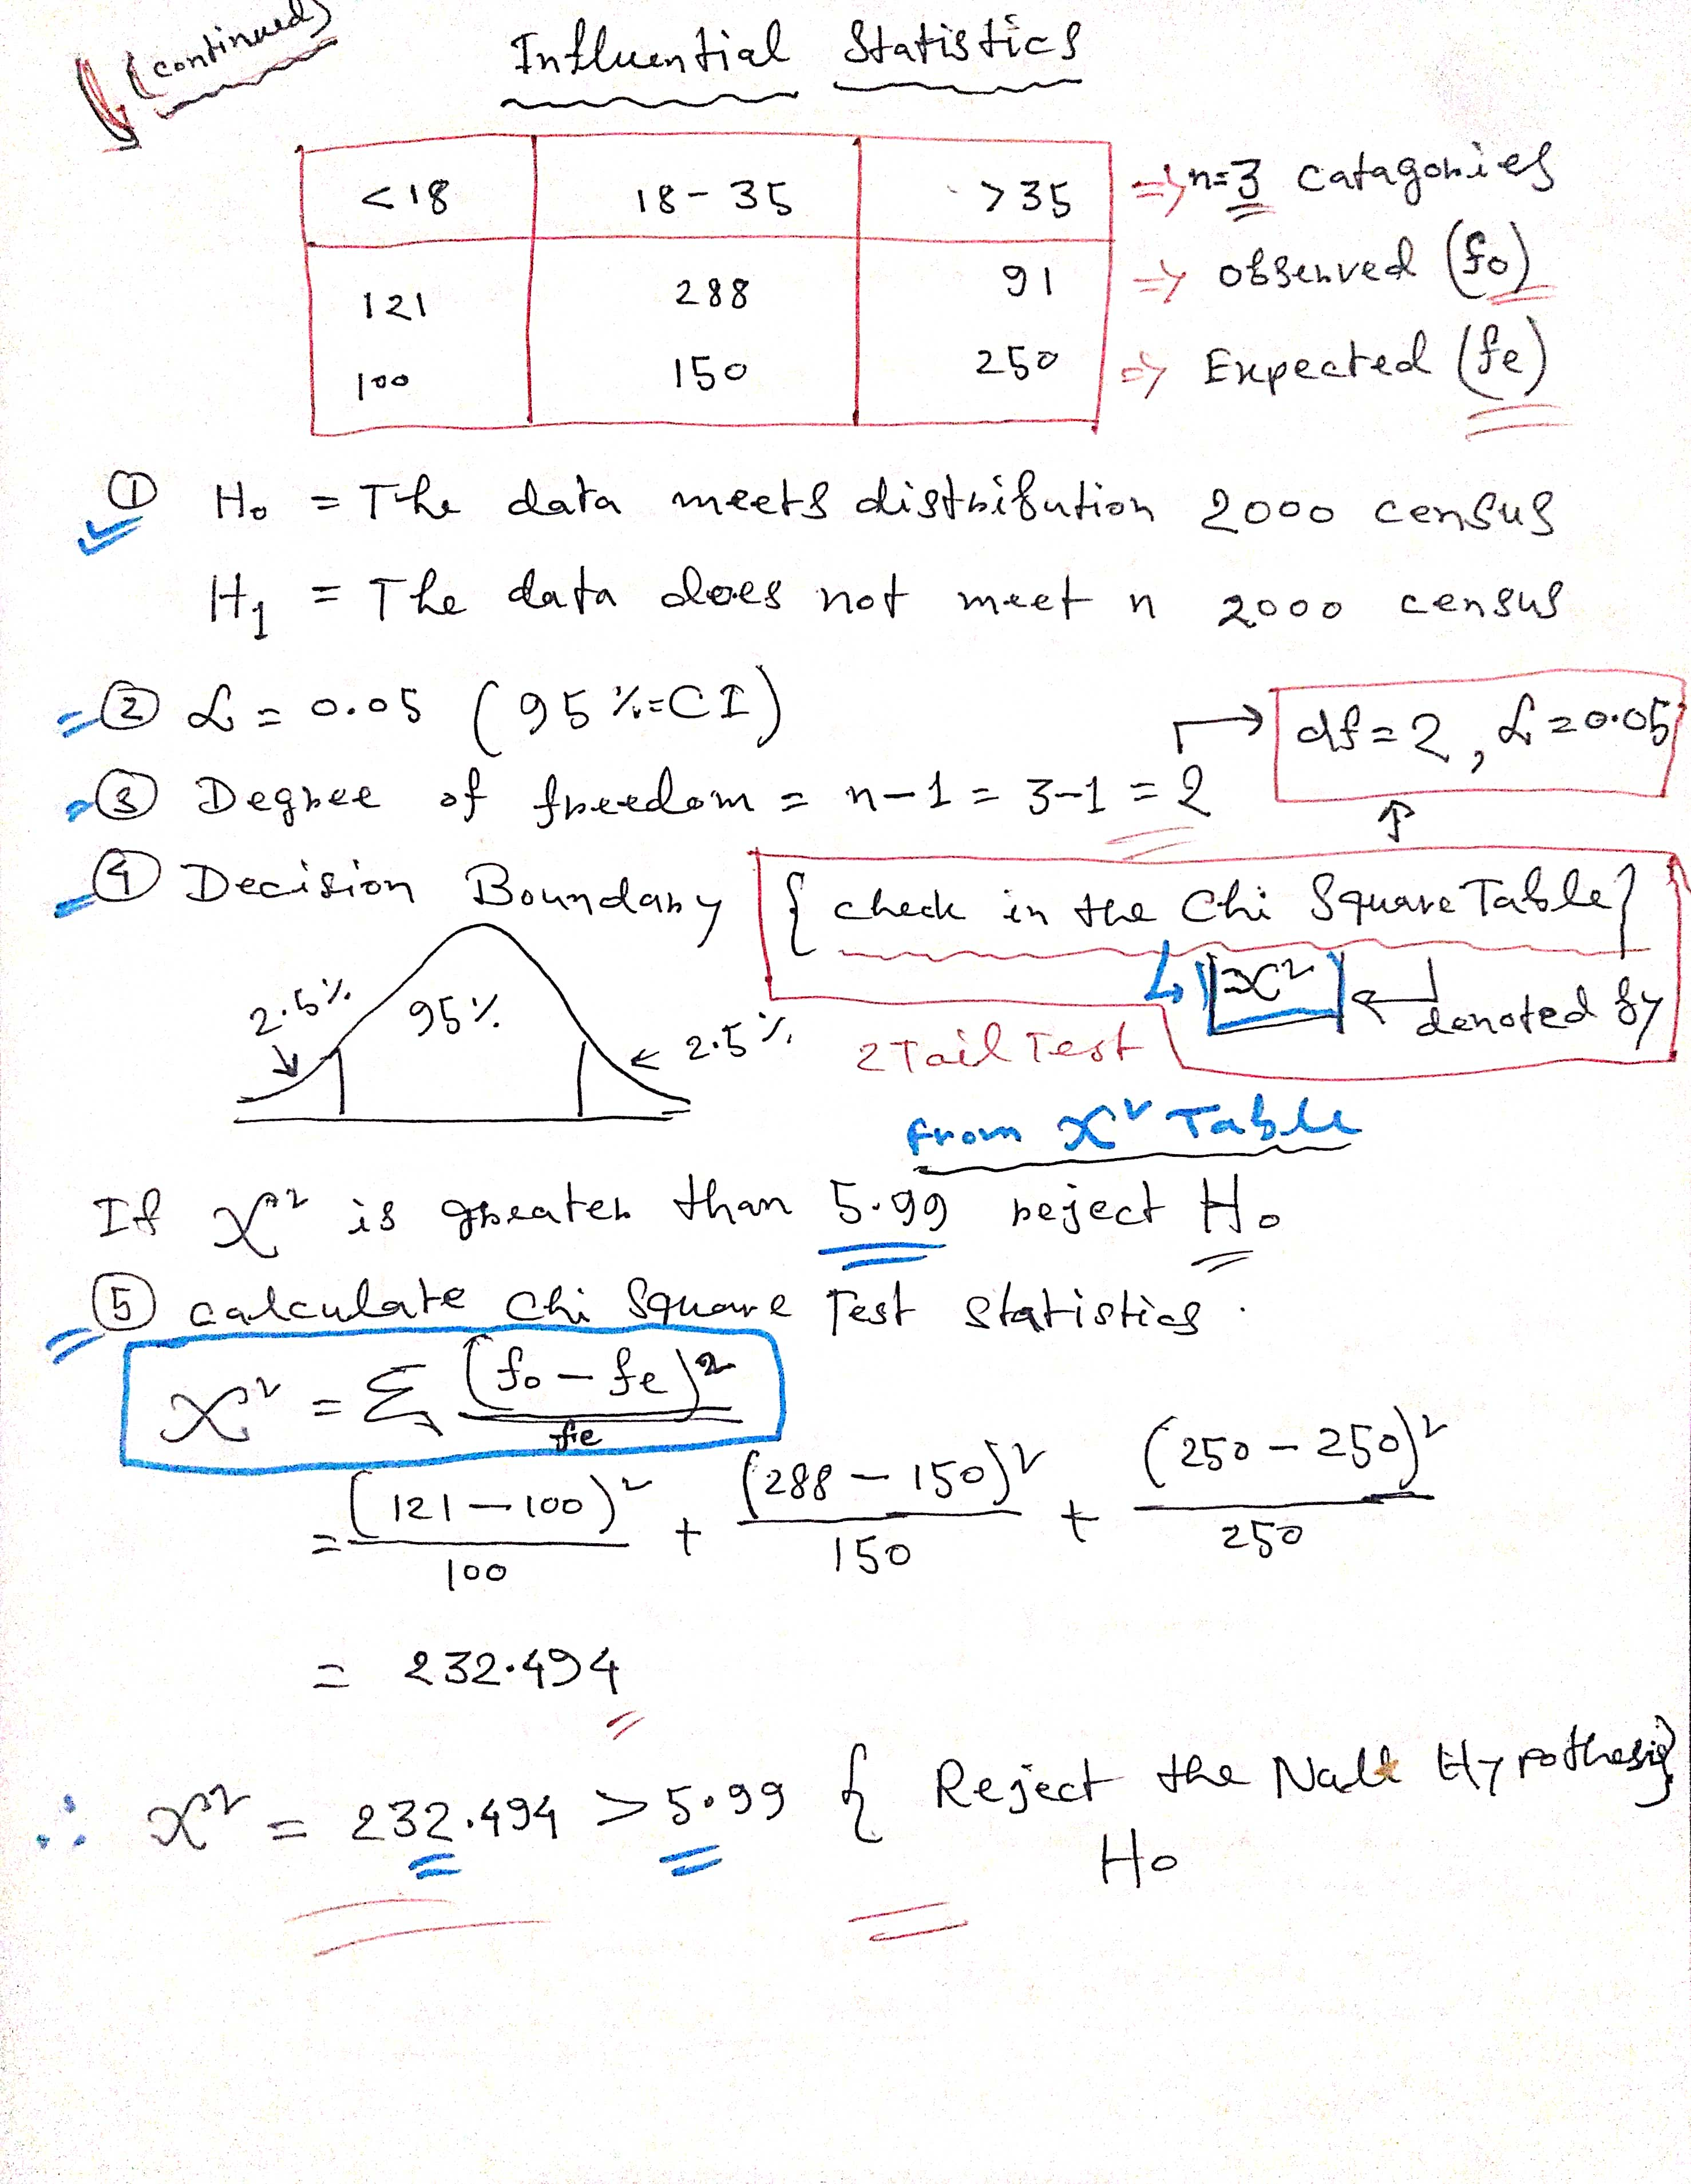 (continued)
Influential Statistics
<18 18-35 >35 => n=3 Catagories
121 288 91 => Observed (fo)
100 150 250 => Expected (fe)
① H₀ = The data meets distribution 2000 census
H₁ = The data does not meet n 2000 census
② α = 0.05 (95%=CI)
df = 2, α = 0.05
③ Degree of freedom = n-1 = 3-1 = 2
④ Decision Boundary {check in the Chi Square Table}
=x²
denoted by
2.5% 95% 2.5%
2 Tail Test
from x² Table
If x² is greater than 5.99 reject H₀
⑤ calculate Chi Square Test Statistics.
x² = Σ (fo - fe)² / fe
= (121-100)² / 100 + (288-150)² / 150 + (250-250)² / 250
= 232.494
∴ x² = 232.494 > 5.99 { Reject the Null Hypothesis}
H₀